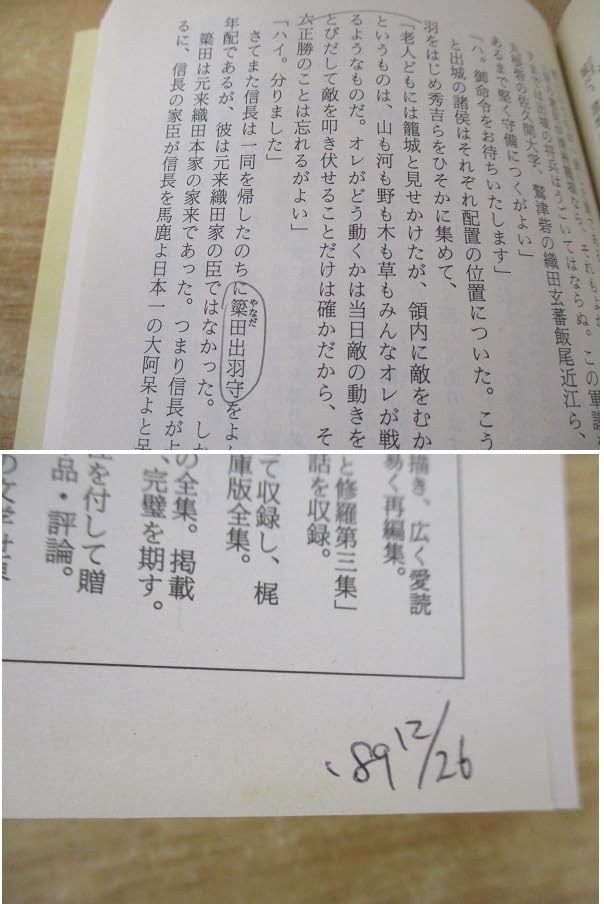 あるまで堅く守備につくがよい」
「ハ。御命令をお待ちいたします」
と出城の諸侯はそれぞれ配置の位置についた。こう
羽をはじめ秀吉らをひそかに集めて、
「老人どもには籠城と見せかけたが、領内に敵をむか
というものは、山も河も野も木も草もみんなオレが戦
るようなものだ。オレがどう動くかは当日敵の動きを
とびだして敵を叩き伏せることだけは確かだから、そ
六正勝のことは忘れるがよい」
「ハイ。分りました」
さてまた信長は一同を帰したのちに簗田出羽守をよ
やなだ
年配であるが、彼は元来織田家の臣ではなかった。しか
簗田は元来織田本家の家来であった。つまり信長が
るに、信長の家臣が信長を馬鹿よ日本一の大阿呆よと
描き、広く愛読
易く再編集。
と修羅第三集」
話を収録。
て収録し、梶
庫版全集。
の全集。掲載
、完璧を期す。
を付して贈
品・評論。
'89 12/26